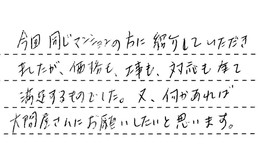 今回同じマンションの方に紹介していただき
ましたが、価格も、工事も、対応も全て
満足するものでした。又、何かあれば
大問屋さんにお願いしたいと思います。